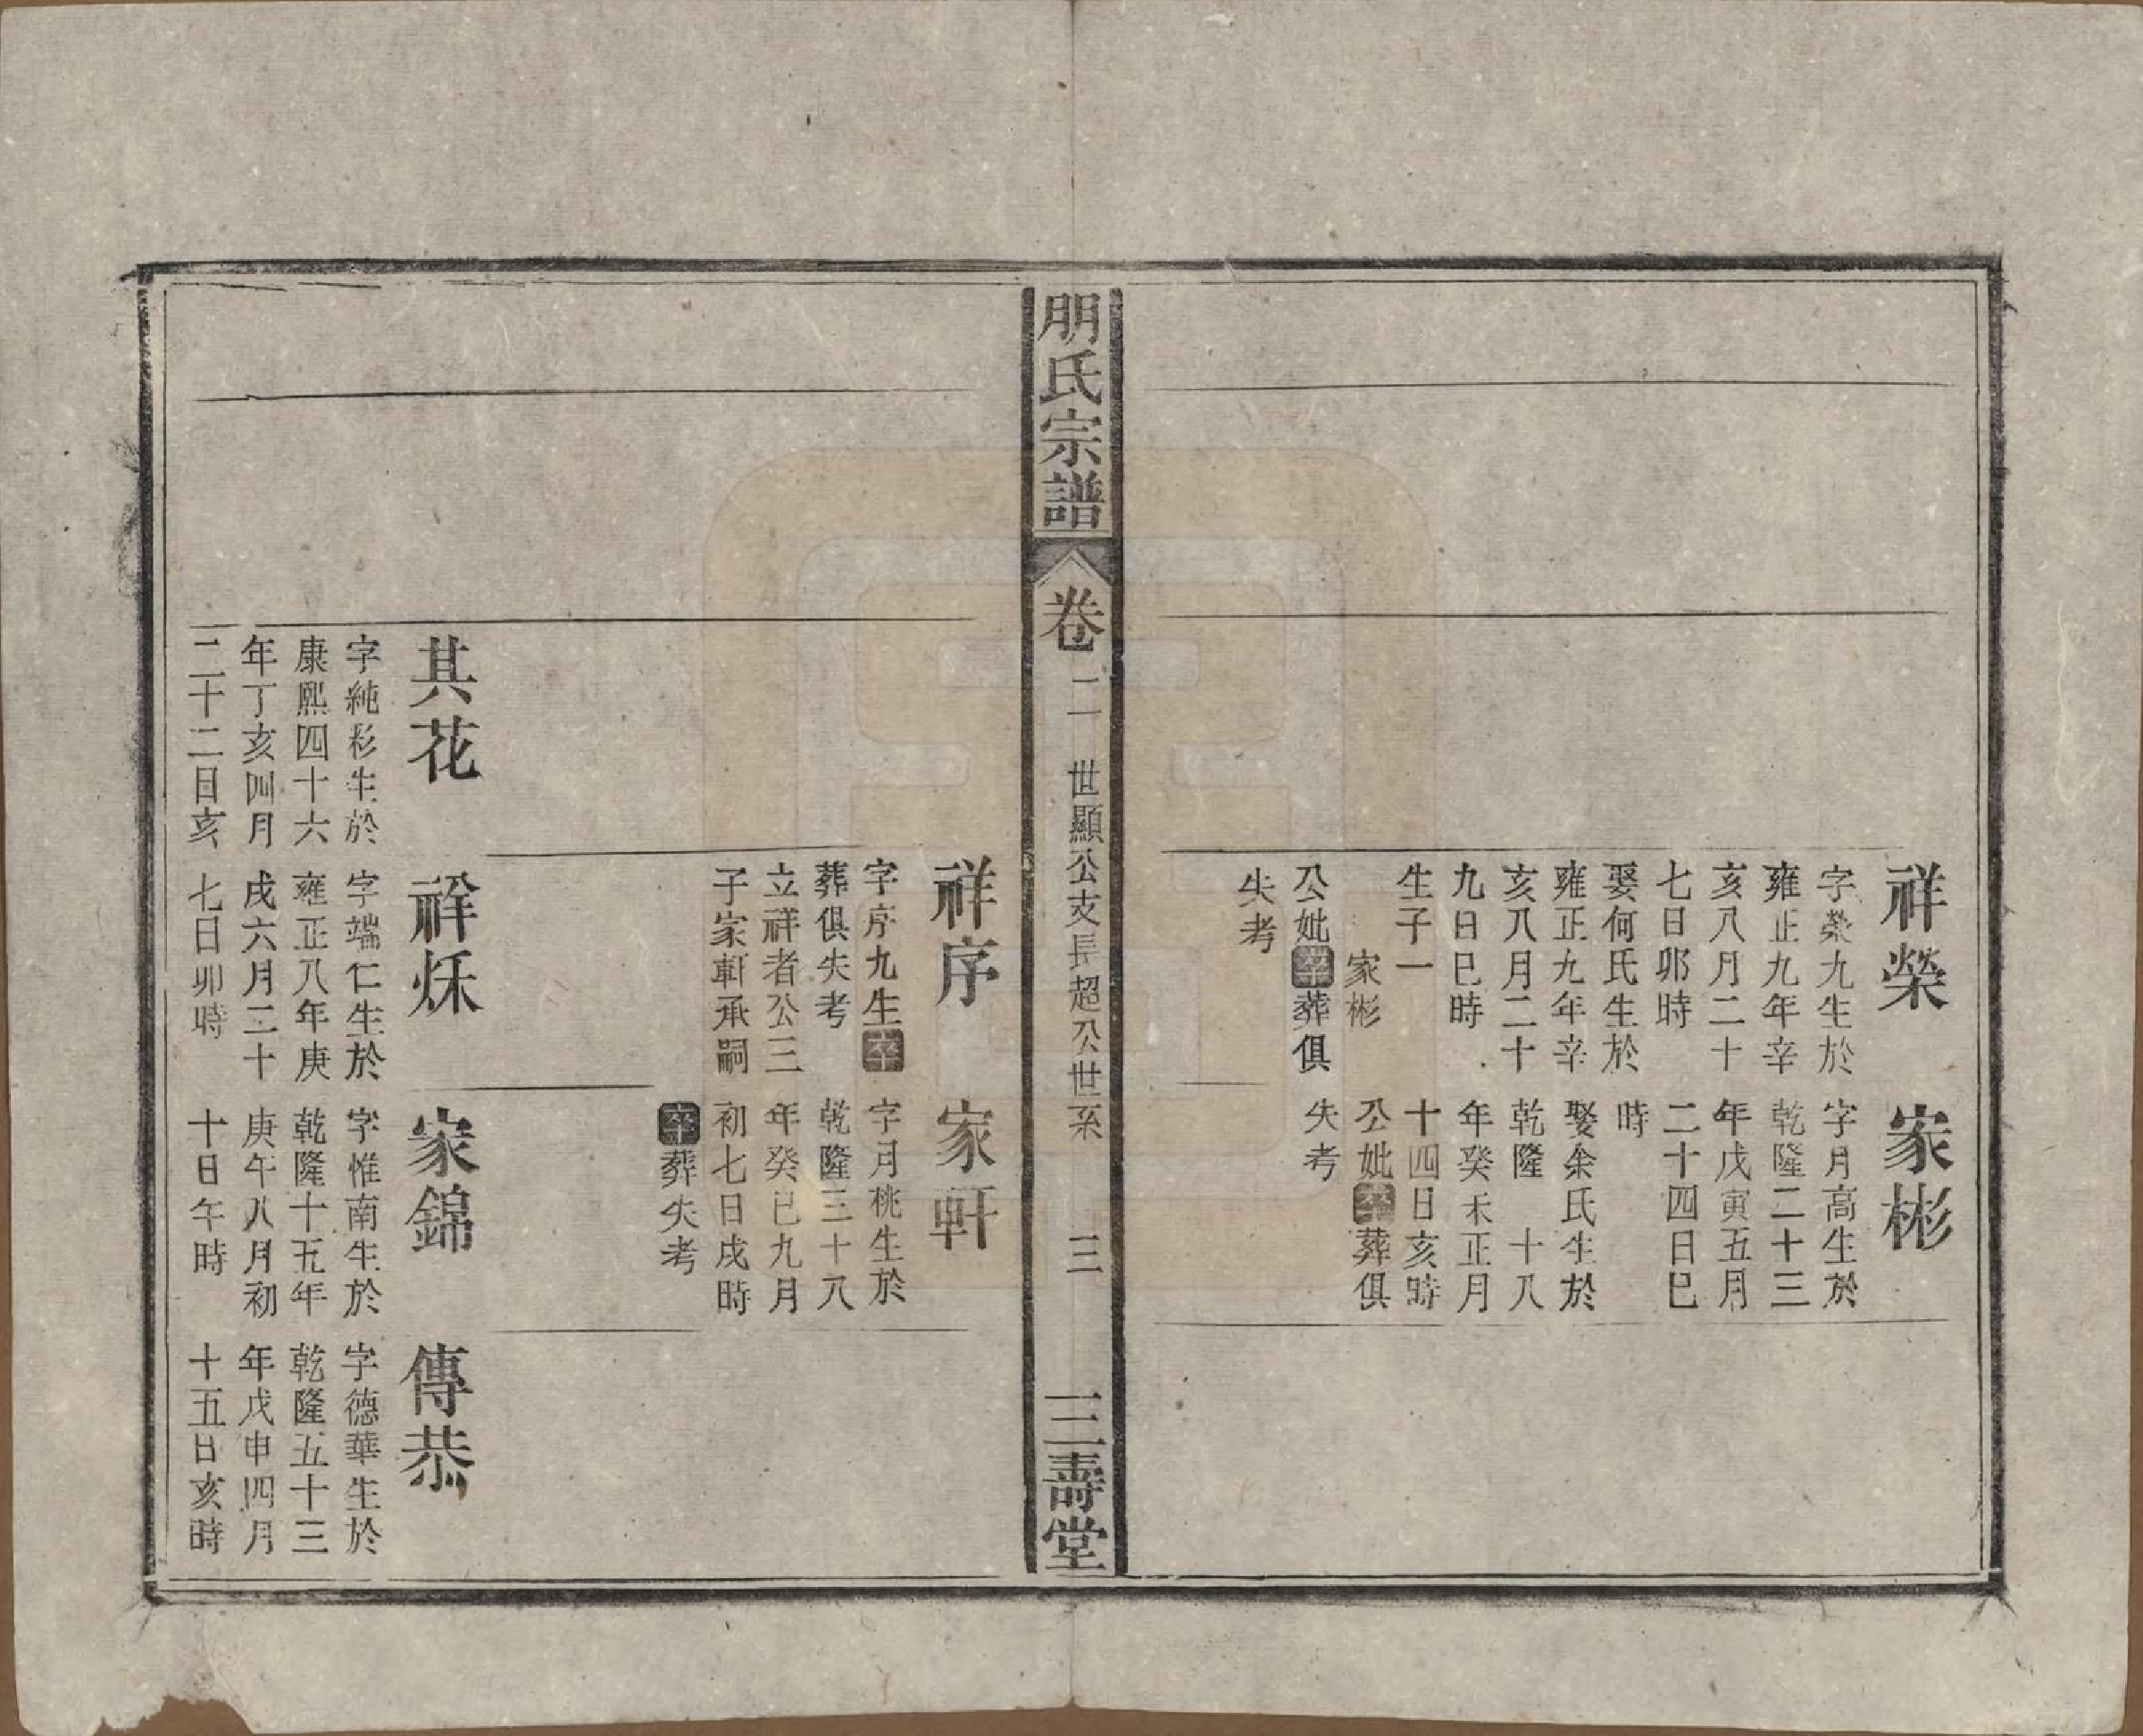 祥榮
字榮九生於
雍正九年辛
亥八月二十
七日卯時
娶何氏生於
雍正九年辛
亥八月二十
九日巳時
生子一
家彬
公妣卒葬俱
失考
家彬
字月高生於
乾隆二十三
年戊寅五月
二十四日巳
時
娶余氏生於
乾隆 十八
年癸未正月
十四日亥時
公妣卒葬俱
失考
朋氏宗譜
卷二
世顯公支長超公世系
三
三壽堂
祥序
字序九生卒
葬俱失考
立祥者公三
子家軒承嗣
家軒
字月桃生於
乾隆三十八
年癸巳九月
初七日戌時
卒葬失考
其花
字純彩生於
康熙四十六
年丁亥四月
二十二日亥
祥烌
字端仁生於
雍正八年庚
戌六月二十
七日卯時
家錦
字惟南生於
乾隆十五年
庚午八月初
十日午時
傳恭
字德華生於
乾隆五十三
年戊申四月
十五日亥時